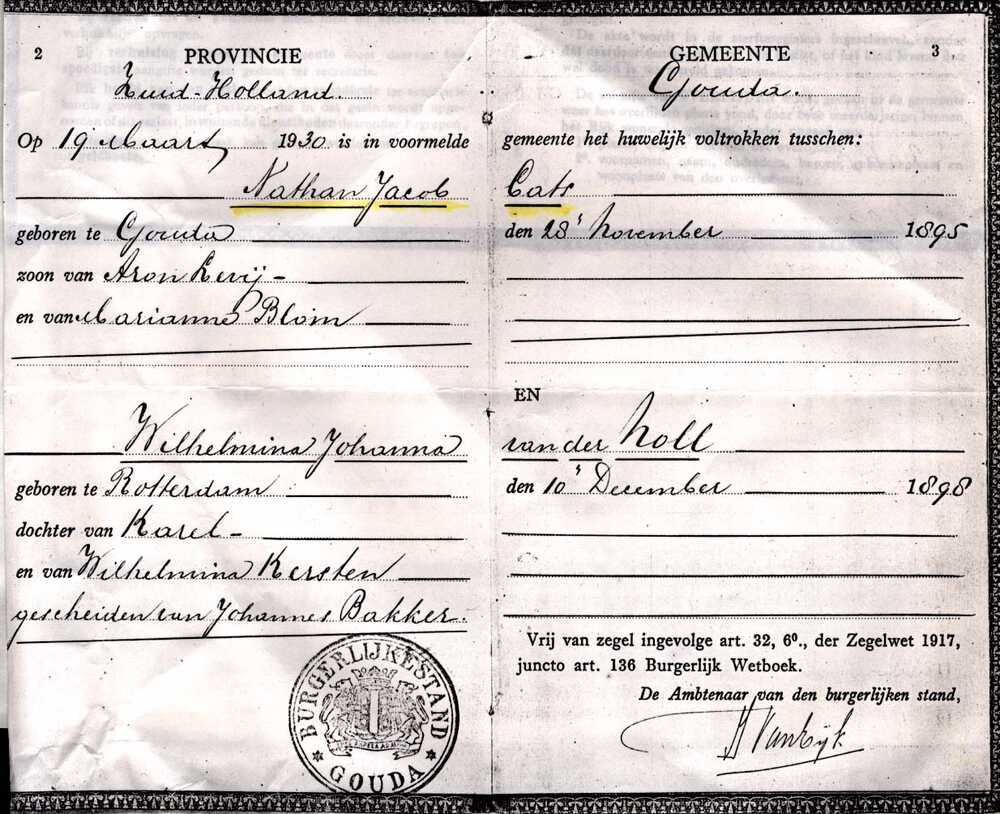 2 PROVINCIE
Zuid-Holland.
Op 19 Maart 1930 is in voormelde
Nathan Jacob
geboren te Gouda
zoon van Aron Levij -
en van Marianne Blom
Wilhelmina Johanna
geboren te Rotterdam
dochter van Karel -
en van Wilhelmina Kersten
gescheiden van Johannes Bakker.
BURGERLIJKE STAND
GOUDA
GEMEENTE 3
Gouda.
gemeente het huwelijk voltrokken tusschen:
Cats
den 28 November 1895
EN
van der Noll
den 10 December 1898
Vrij van zegel ingevolge art. 32, 6º., der Zegelwet 1917,
juncto art. 136 Burgerlijk Wetboek.
De Ambtenaar van den burgerlijken stand,